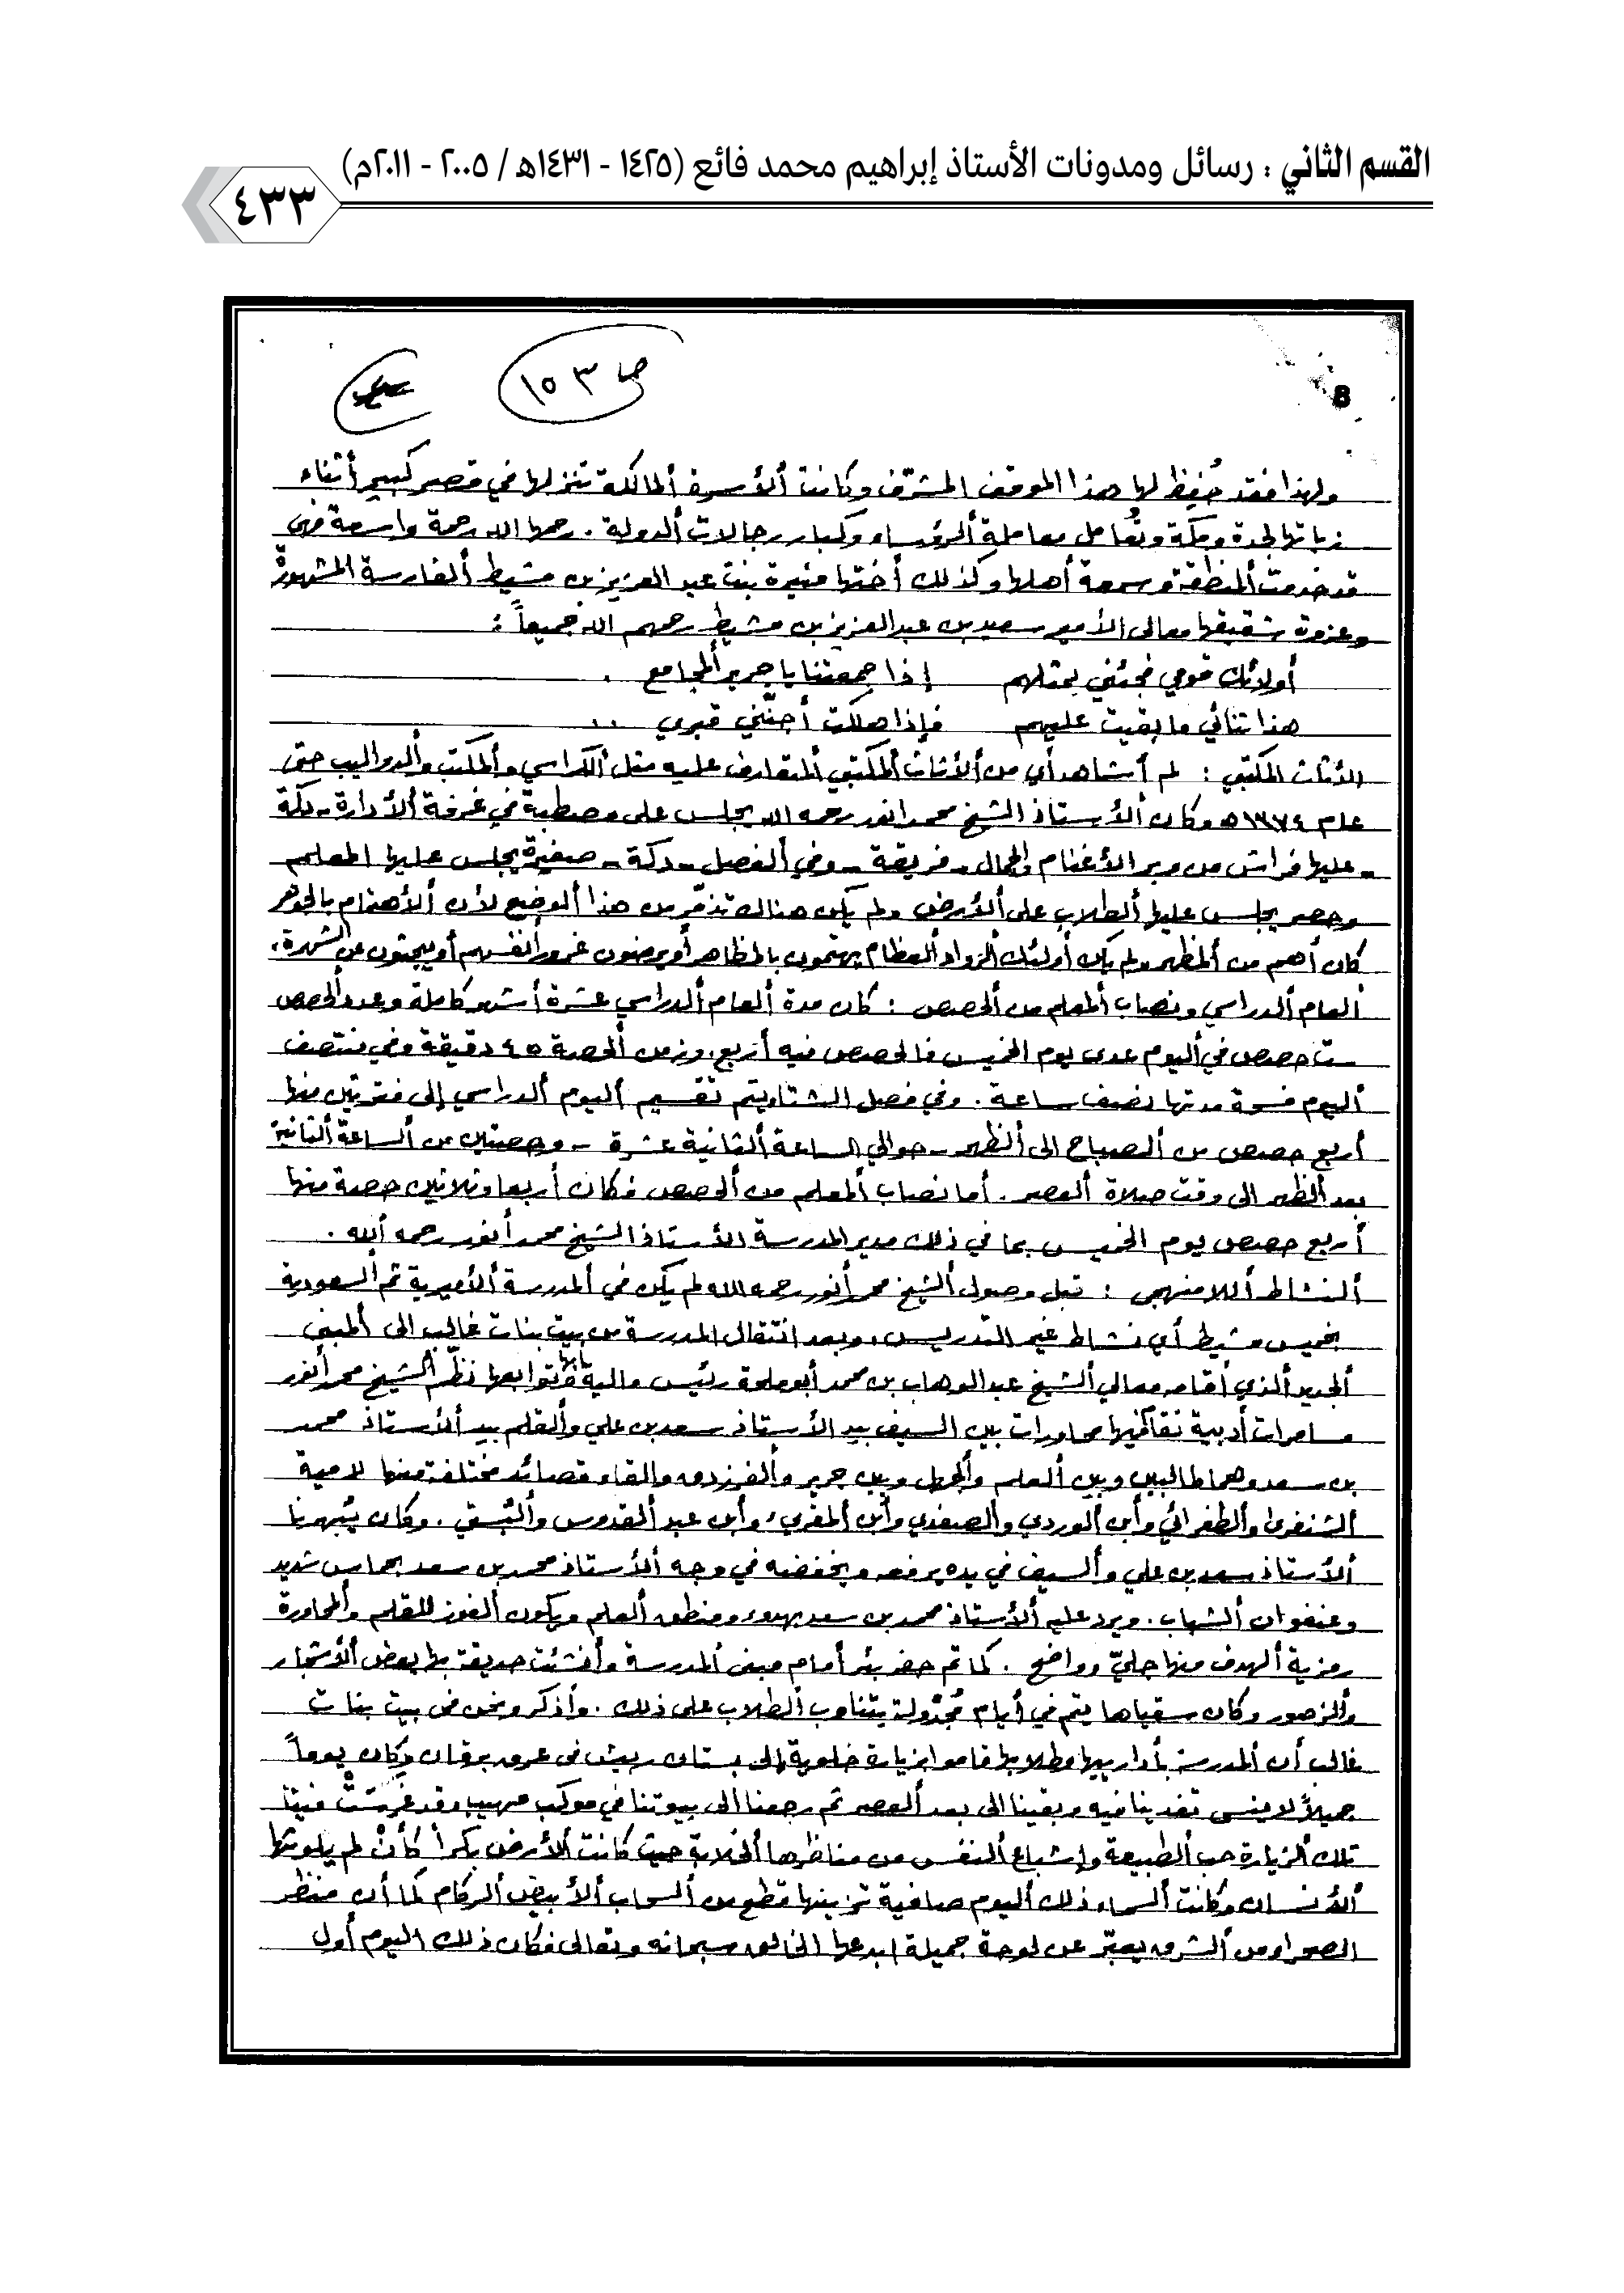 القسم الثاني : رسائل ومدونات الأستاذ إبراهيم محمد فائع (١٤٢٥ - ١٤٣١هـ / ٢٠٠٥ - ٢٠١١م)
٤٣٣
8
ص ١٥٣
ولهذا فقد حُفِظ لها هذا الموقف المشرّف وكانت ألأسرة ألمالكة تنزلها في قصر كبير أثناء
زياتها لجدة ومكة وتُعامل معاملة ألرؤساء وكبار رجالات ألدولة . رحمها الله رحمة واسعة فهي
قد خدمت ألمنطقة وسمعة أهلها وكذلك أختها منيرة بنت عبد العزيز بن مشيط ألفارسة المشهورة
وعزوة شقيقها معالي الأمير سعيد بن عبدالعزيز بن مشيط رحمهم الله جميعاً :
أولائك قومي فجئني بمثلهم إذا جمعتنا يا جرير ألمجامع .
هذا ثنائي ما بقيت عليهم فإذا هلكت أجنّني قبري ..
الأثاث المكتبي : لم أشاهد أي من ألأثاث ألمكتبي ألمتعارف عليه مثل ألكراسي وألمكتب وألدواليب حتى
عام ١٣٧٤ه وكان ألأستاذ الشيخ محمد انور رحمه الله يجلس على مصطبة في غرفة ألأدارة - دكة
- عليها فراش من وبر الأغنام والجمال - فريقة - وفي ألفصل - دكة - صغيرة يجلس عليها المعلم
وحصر يجلس عليها ألطلاب على ألأرض ولم يكن هناك تذمّر من هذا ألوضع لأن ألأهتمام بالجوهر
كان أهم من ألمظهر ولم يكن أولئك ألرواد ألعظام يهتمون بالمظاهر أو يرضون غرور أنفسهم أو يبحثون عن الشهرة .
ألعام ألدراسي ونصاب ألمعلم من ألحصص : كان مدة ألعام ألدراسي عشرة أشهر كاملة وعدد ألحصص
ست حصص في أليوم عدى يوم الخميس فالحصص فيه أربع . وزمن ألحصة ٤٥ دقيقة وفي منتصف
أليوم فسحة مدتها نصف ساعة . وفي فصل الشتاء يتم تقسيم أليوم ألدراسي إلى فترتين منها
أربع حصص من ألصباح الى ألظهر - حوالي الساعة ألثانية عشرة - وحصتين من ألساعة ألثانية
بعد ألظهر الى وقت صلاة ألعصر . أما نصاب ألمعلم من ألحصص فكان أربعا وثلاثين حصة منها
أربع حصص يوم الخميس بما في ذلك مدير المدرسة الأستاذ الشيخ محمد أنور رحمه ألله .
ألنشاط أللامنهجي : قبل وصول ألشيخ محمد أنور رحمه الله لم يكن في ألمدرسة ألأميرية ثم ألسعودية
بخميس مشيط أي نشاط غير التدريس . وبعد انتقال المدرسة من بيت بنات غالب الى ألمبنى
ألجديد ألذي أقامه معالي ألشيخ عبد الوهاب بن محمد أبو ملحة رئيس مالية أبها وتوابعها نظّم ألشيخ محمد أنور
مسامرات أدبية تقام فيها محاورات بين السيف بيد الأستاذ سعد بن علي وألقلم بيد ألأستاذ محمد
بن سعد وهما طالبين وبين ألعلم وألجهل وبين جرير وألفرزدق والقاء قصائد مختلفة منها لامية
الشنفرى وألطغرائي وأبن ألوردي وألصفدي وأبن ألمقري وأبن عبد ألقدوس وألبستي . وكان يُبهرنا
ألأستاذ سعد بن علي وألسيف في يده يرفعه ويخفضه في وجه ألأستاذ محمد بن سعد بحماس شديد
وعنفوان ألشباب . ويرد عليه ألأستاذ محمد بن سعد بهدوء ومنطق ألعلم ويكون ألفوز للقلم وألمحاورة
رمزية ألهدف منها جليّ وواضح . كما تم حفر بئر أمام مبنى ألمدرسة وأنشئت حديقة بها بعض ألأشجار
وألزهور وكان سقياها يتم في أيام مُجَدْولة يتناوب ألطلاب على ذلك . وأذكر ونحن في بيت بنات
غالب أن ألمدرسة بأدارييها وطلابها قاموا بزيارة خلوية إلى بستان ربيش في عرق برقان وكان يوماً
جميلاً لا ينسى تغدينا فيه وبقينا الى بعد ألعصر ثم رجعنا الى بيوتنا في موكب مهيب وقد غرست فينا
تلك ألزيارة حب ألطبيعة وإشباع ألنفس من مناظرها ألخلابة حيث كانت ألأرض بكراً كأنْ لم يلوثها
ألأنسان وكانت ألسماء ذلك أليوم صافية تزينها قطع من ألسحاب ألأبيض ألركام كما أن منظر
الصحراء من ألشرق يعبّر عن لوحة جميلة ابدعها الخالق سبحانه وتعالى فكان ذلك اليوم أول